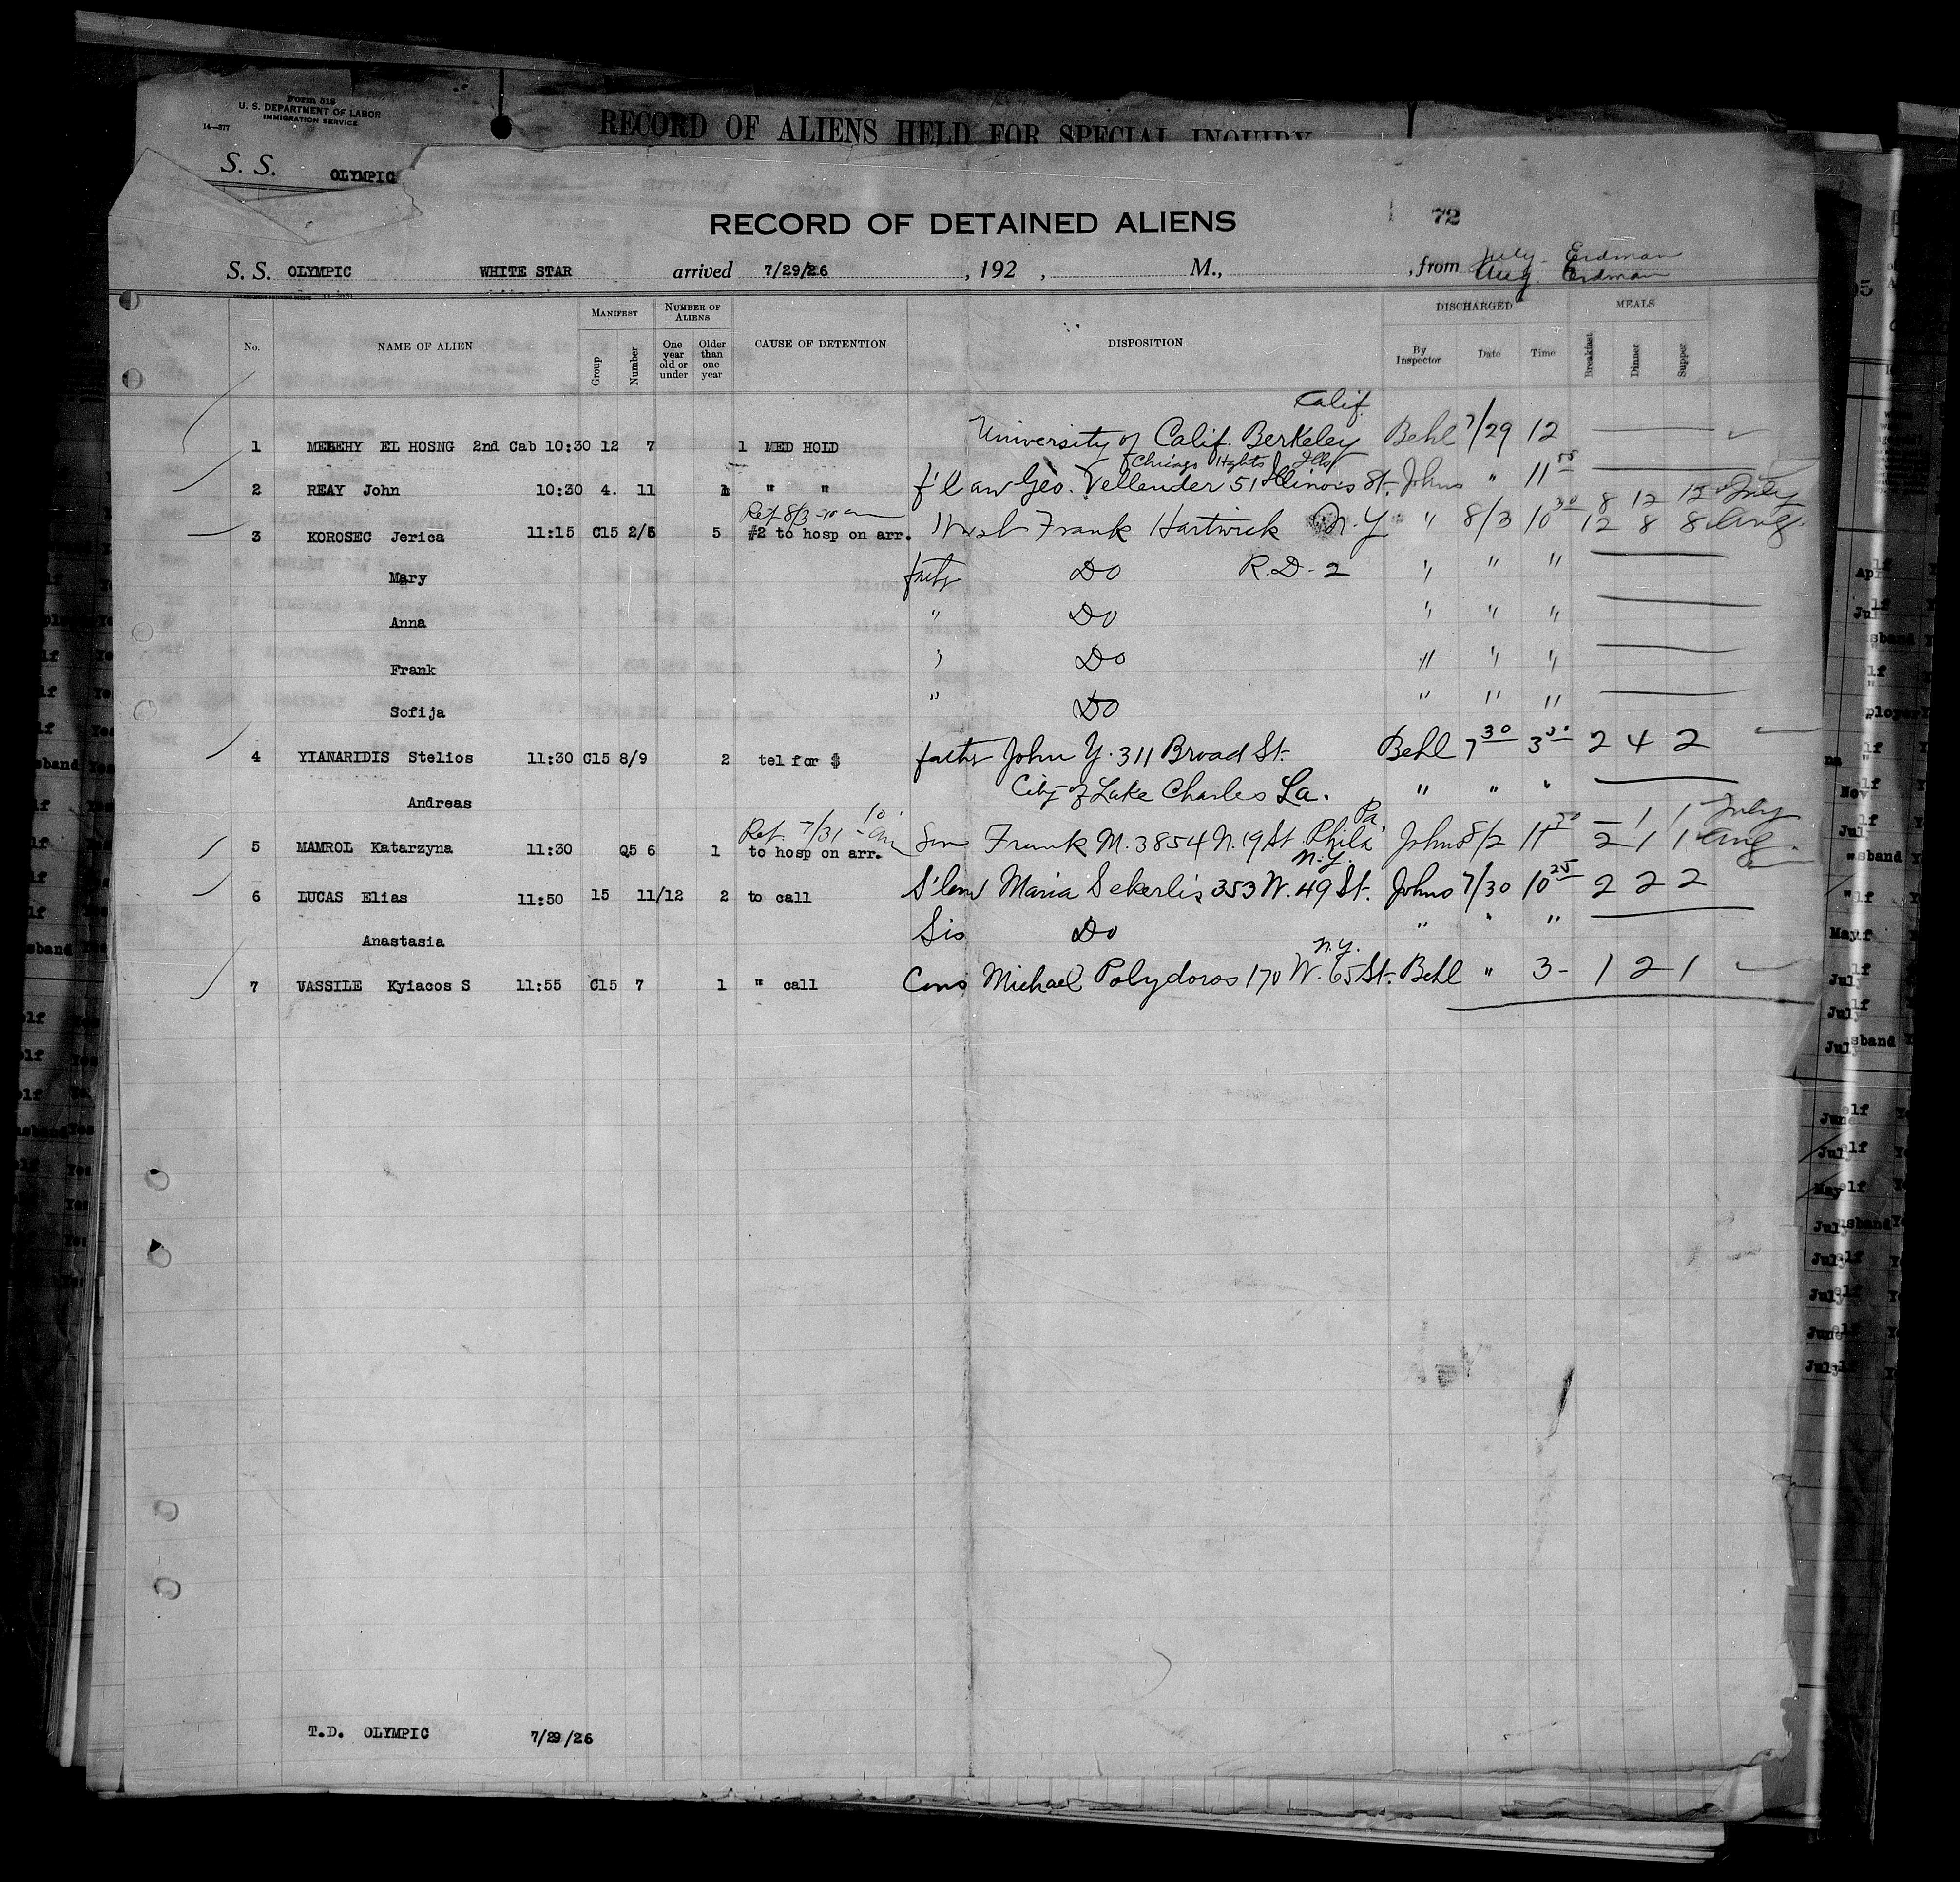 Form 518
U. S. DEPARTMENT OF LABOR
IMMIGRATION SERVICE
14—377
RECORD OF ALIENS HELD FOR SPECIAL INQUIRY
S. S. OLYMPIC
RECORD OF DETAINED ALIENS 72
July - Erdman
S. S. OLYMPIC WHITE STAR arrived 7/29/26 , 192 , M., , from Aug. Erdman
No. NAME OF ALIEN MANIFEST Group Number NUMBER OF ALIENS One year old or under Older than one year CAUSE OF DETENTION DISPOSITION DISCHARGED By Inspector Date Time MEALS Breakfast Dinner Supper
Calif.
1 EL HOSNG 2nd Cab 10:30 12 7 1 MED HOLD University of Calif. Berkeley Behl 7/29 12
Chicago Hghts Ills
2 REAY John 10:30 4. 11 1 " " f'law Geo. Vellender 51 Illinois St. Johns " 11 55
Ref 8/3 - 10 am 8 12 12 July
3 KOROSEC Jerica 11:15 C15 2/6 5 #2 to hosp on arr. Husb Frank Hartwick N.Y " 8/3 10 30 12 8 8 Aug.
Mary fath Do R.D-2 " " "
Anna " Do " " "
Frank " Do " " "
Sofija " Do " " "
4 YIANARIDIS Stelios 11:30 C15 8/9 2 tel for $ father John Y. 311 Broad St. Behl 7 30 3 2 4 2
Andreas City of Lake Charles La. " " "
Ref 7/31 - 10 am Pa — 1 1 July
5 MAMROL Katarzyna 11:30 Q5 6 1 to hosp on arr. Son Frank M. 3854 N. 19 St. Phila Johns 8/2 11 30 2 1 1 Aug.
N.Y.
6 LUCAS Elias 11:50 15 11/12 2 to call S'law Maria Sekerlis 353 W. 49 St. Johns 7/30 10 25 2 2 2
Anastasia Sis Do " " "
N.Y.
7 VASSILE Kyiacos S 11:55 C15 7 1 " call Cous Michael Polydoros 170 W. 65 St. Behl " 3- 1 2 1
T.D. OLYMPIC 7/29/26